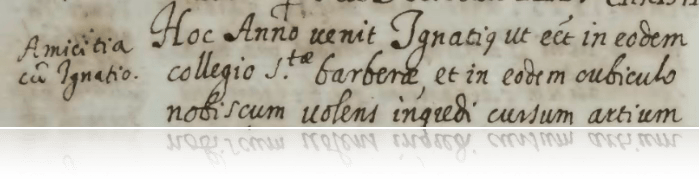 Amicitia
cũ Ignatio.
Hoc Anno uenit Ignatiꝯ ut eēt in eodem
collegio S.tæ barberæ, et in eodem cubiculo
nobiscum uolens ingredi cursum artium